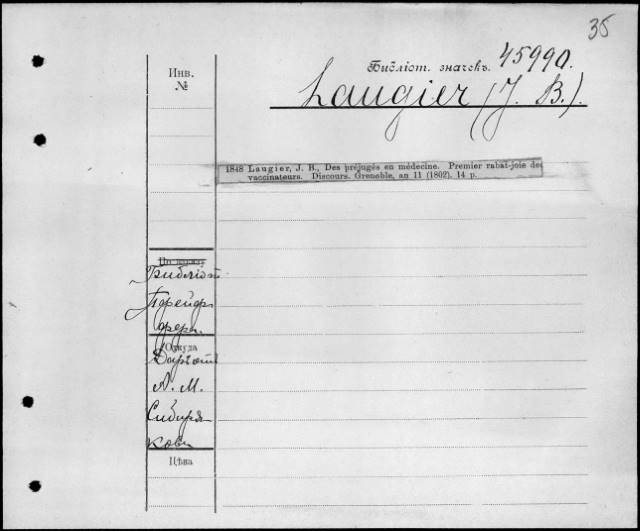 35
Инв.
№
Библіот. значекъ. 45990.
Laugier (J. B.).
1848 Laugier, J. B., Des préjugés en médecine. Premier rabat-joie des
vaccinateurs. Discours. Grenoble, an 11 (1802). 14 p.
Библіот.
Откуда
А. М.
Сибиря-
кова
Цѣна